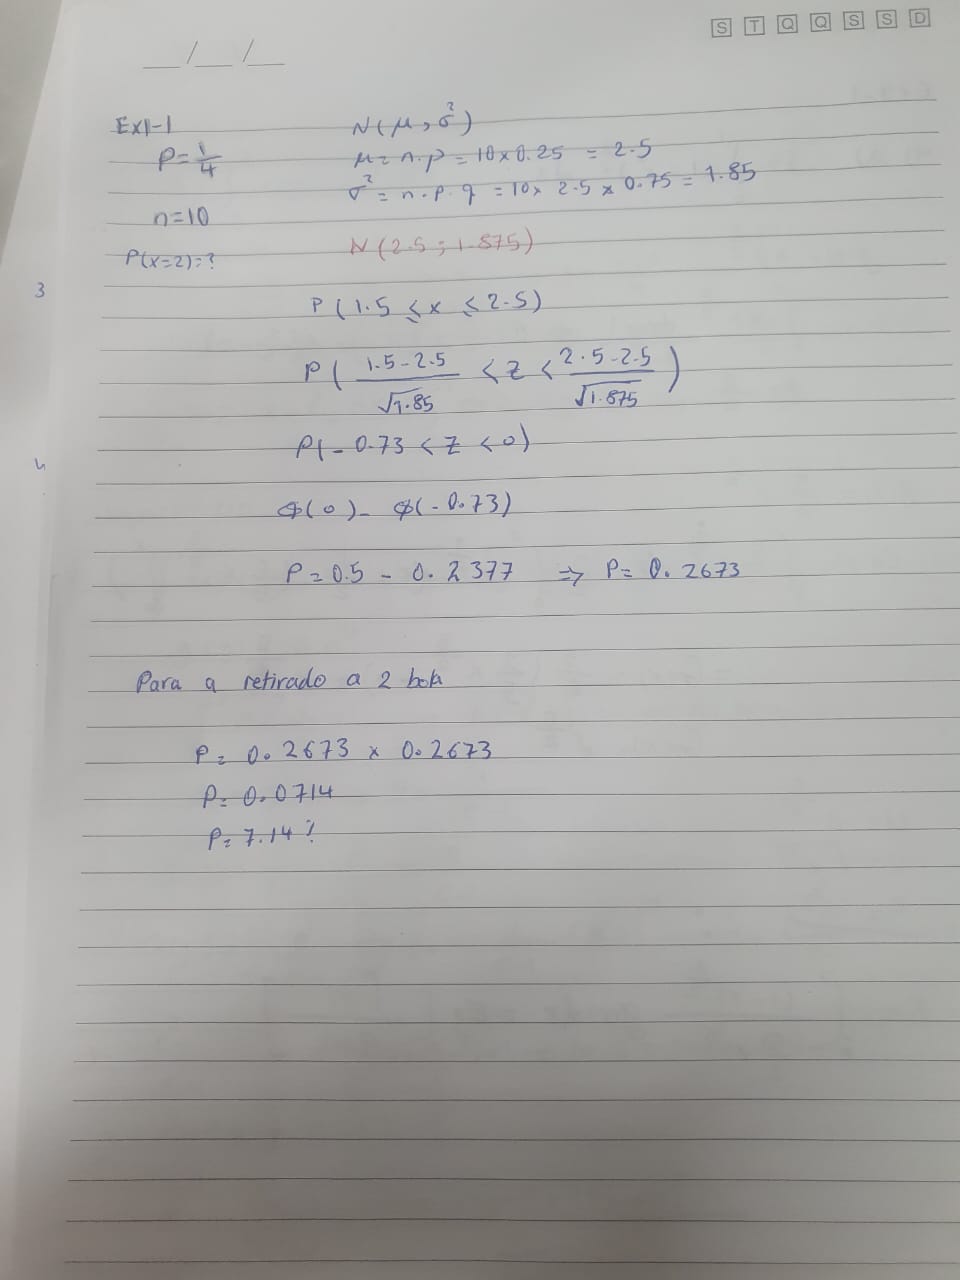 S T Q Q S S D
__/__/__
EX1-1
N(μ, σ²)
P=1/4
μ = n.p = 10×0.25 = 2.5
σ² = n.p.q = 10× 2.5 × 0.75 = 1.85
n=10
N(2.5 ; 1.875)
P(x=2)=?
3
P(1.5 ≤ x ≤ 2.5)
P( (1.5-2.5)/√1.85 < Z < (2.5-2.5)/√1.875 )
P(-0.73 < Z < 0)
φ(0) - φ(-0.73)
P=0.5 - 0.2377 => P= 0.2673
Para a retirado a 2 bola
P= 0.2673 × 0.2673
P= 0.0714
P= 7.14